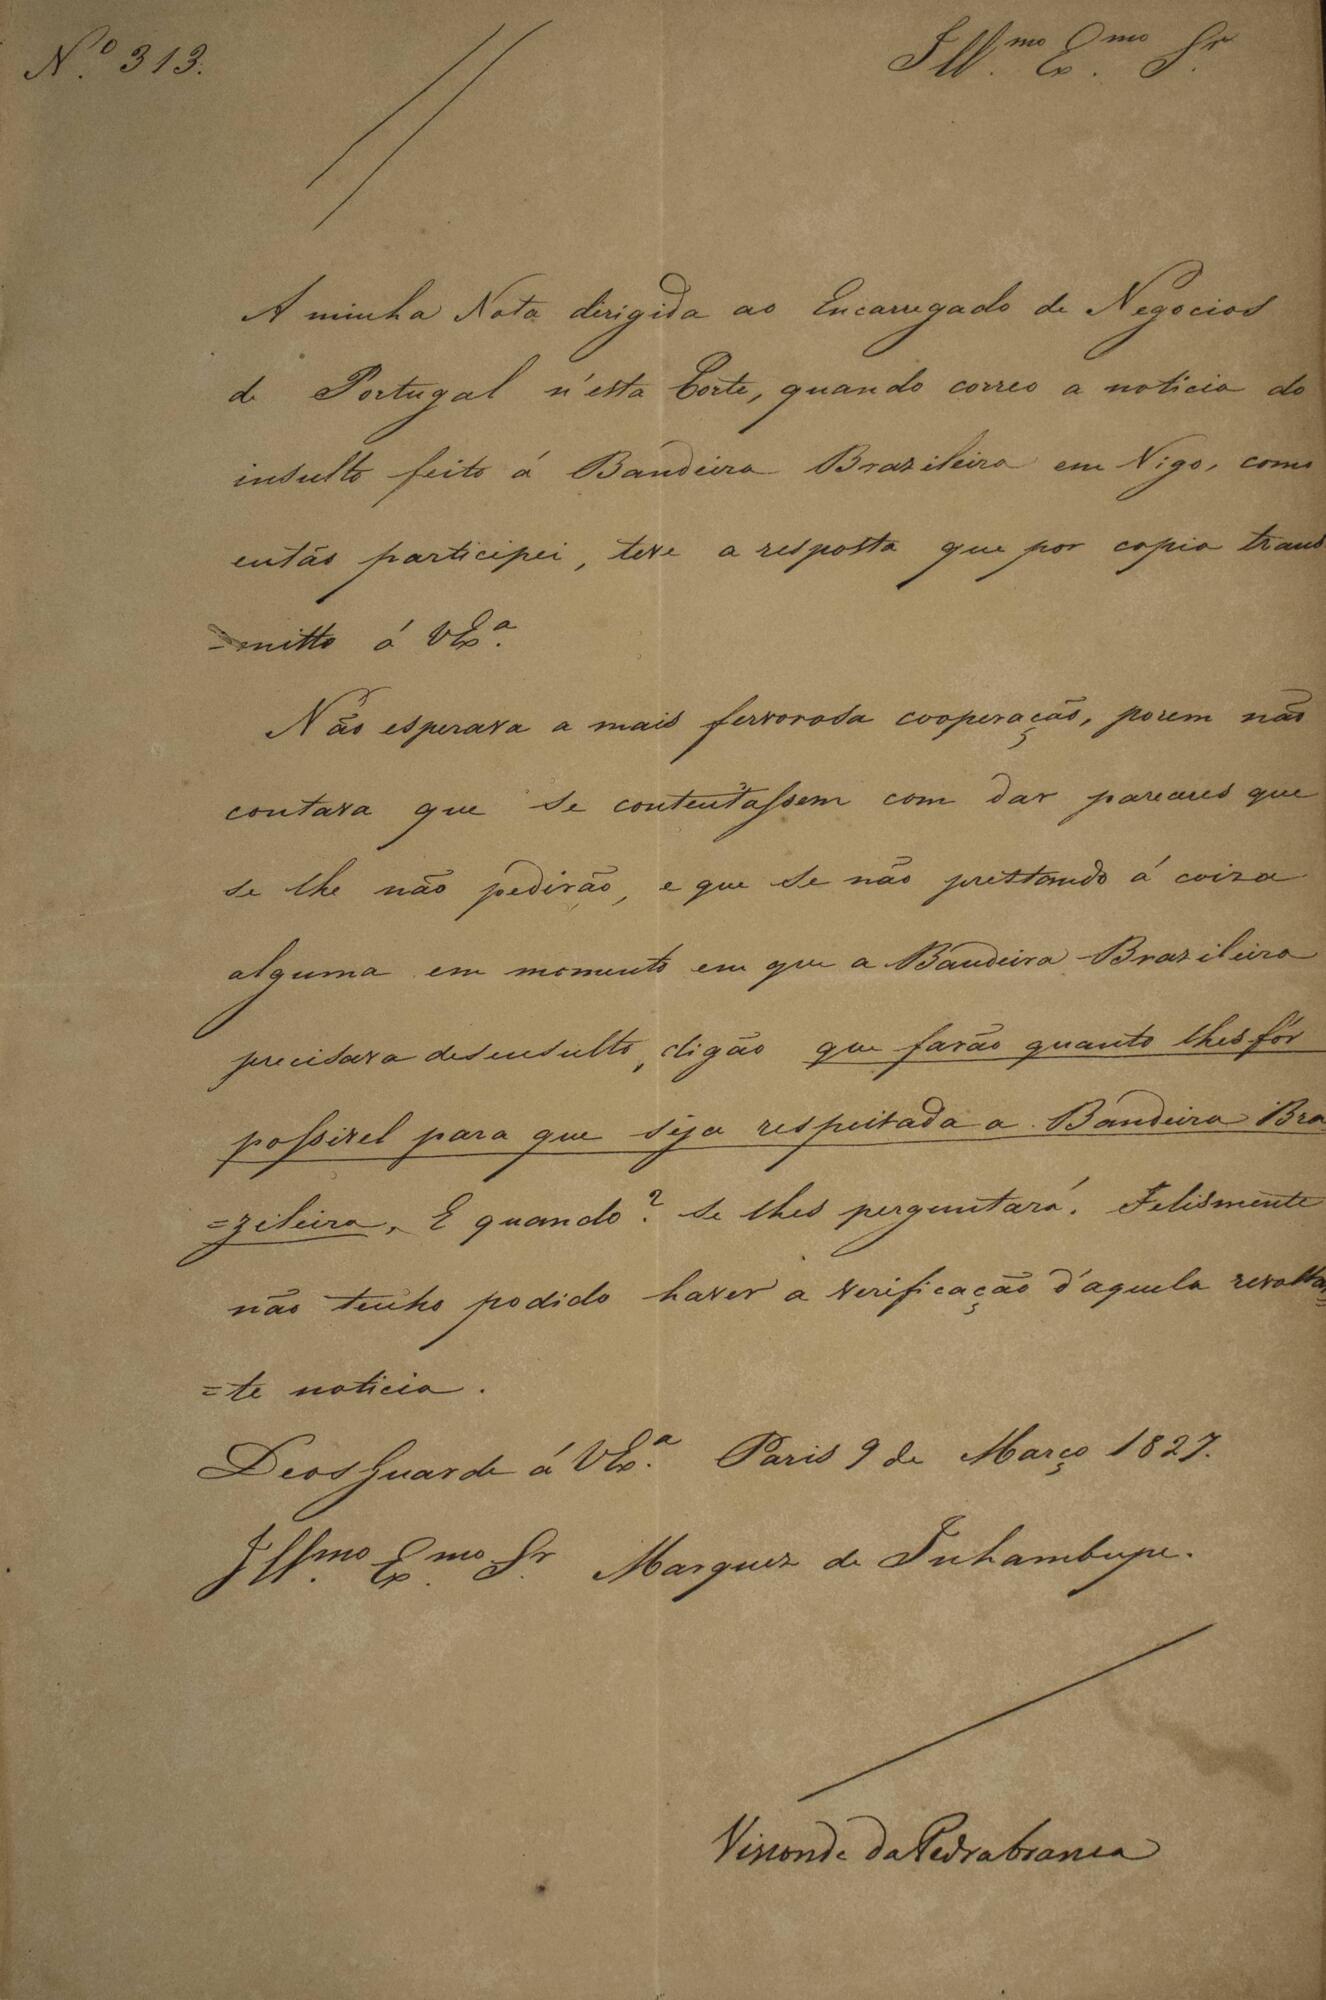 N.º 313.
Ill.mo Ex.mo Sr.
A minha Nota dirigida ao Encarregado de Negocios
de Portugal n'esta Corte, quando correo a noticia do
insulto feito á Bandeira Brazileira em Vigo, como
então participei, teve a resposta que por copia trans
=mitto á VEx.ª
Não esperava a mais fervorosa cooperação, porem não
contava que se contentassem com dar pareceres que
se lhe não pedirão, e que se não prestando á coiza
alguma em momento em que a Bandeira Brazileira
precisava desensulto, digão que farão quanto lhes fôr
possivel para que seja respeitada a Bandeira Bra
=zileira. E quando? se lhes perguntará. Felismente
não tenho podido haver a verificação d'aquela revoltan=
=te noticia.
Deos Guarde á VEx.ª Paris 9 de Março 1827.
Ill.mo Ex.mo Sr. Marquez de Inhambupe.
Visconde da Pedrabranca